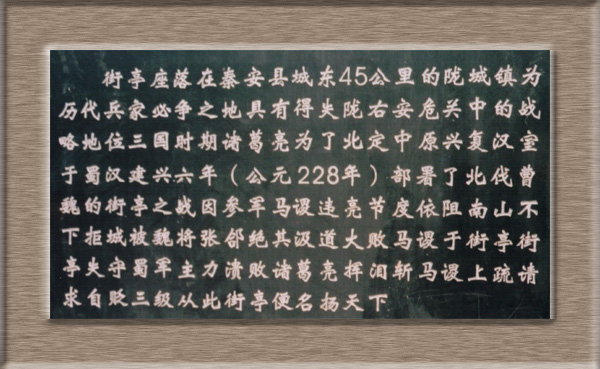 街亭座落在秦安县城东45公里的陇城镇为
历代兵家必争之地具有得失陇右安危关中的战
略地位三国时期诸葛亮为了北定中原兴复汉室
于蜀汉建兴六年（公元228年）部署了北伐曹
魏的街亭之战因参军马谡违亮节度依阻南山不
下拒城被魏将张郃绝其汲道大败马谡于街亭街
亭失守蜀军主力溃败诸葛亮挥泪斩马谡上疏请
求自贬三级从此街亭便名扬天下